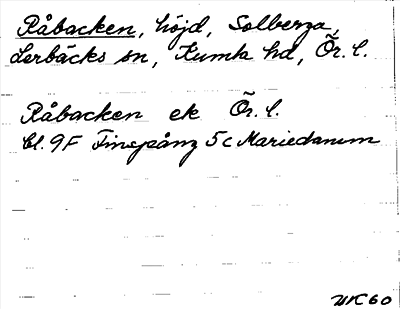 Råbacken, höjd, Solberga,
Lerbäcks sn, Kumla hd, Ör. l.
Råbacken ek Ör. l.
bl. 9F Finspång 5c Mariedamm
UK60